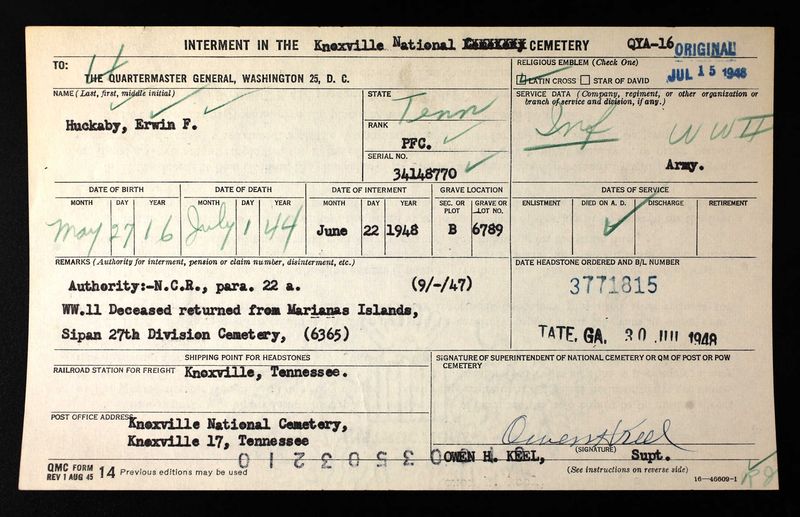 INTERMENT IN THE Knoxville National CEMETERY QYA-16 ORIGINAL
JUL 15 1948
TO:
THE QUARTERMASTER GENERAL, WASHINGTON 25, D. C.
RELIGIOUS EMBLEM (Check One)
LATIN CROSS STAR OF DAVID
NAME (Last, first, middle initial)
Huckaby, Erwin F.
STATE
Tenn
RANK
PFC.
SERIAL NO.
34148770
SERVICE DATA (Company, regiment, or other organization or branch of service and division, if any.)
Inf WW II
Army.
DATE OF BIRTH DATE OF DEATH DATE OF INTERMENT GRAVE LOCATION DATES OF SERVICE
MONTH DAY YEAR MONTH DAY YEAR MONTH DAY YEAR SEC. OR PLOT GRAVE OR LOT NO. ENLISTMENT DIED ON A. D. DISCHARGE RETIREMENT
May 27 16 July 1 44 June 22 1948 B 6789
REMARKS (Authority for interment, pension or claim number, disinterment, etc.)
Authority:-N.C.R., para. 22 a. (9/-/47)
WW.11 Deceased returned from Marianas Islands,
Sipan 27th Division Cemetery, (6365)
DATE HEADSTONE ORDERED AND B/L NUMBER
3771815
TATE, GA. 30 JUL 1948
SHIPPING POINT FOR HEADSTONES
RAILROAD STATION FOR FREIGHT Knoxville, Tennessee.
POST OFFICE ADDRESS Knoxville National Cemetery,
Knoxville 17, Tennessee
SIGNATURE OF SUPERINTENDENT OF NATIONAL CEMETERY OR QM OF POST OR POW CEMETERY
Owen H Keel
(SIGNATURE)
OWEN H. KEEL, Supt.
(See instructions on reverse side)
QMC FORM
REV 1 AUG 45 14 Previous editions may be used
16—46609-1